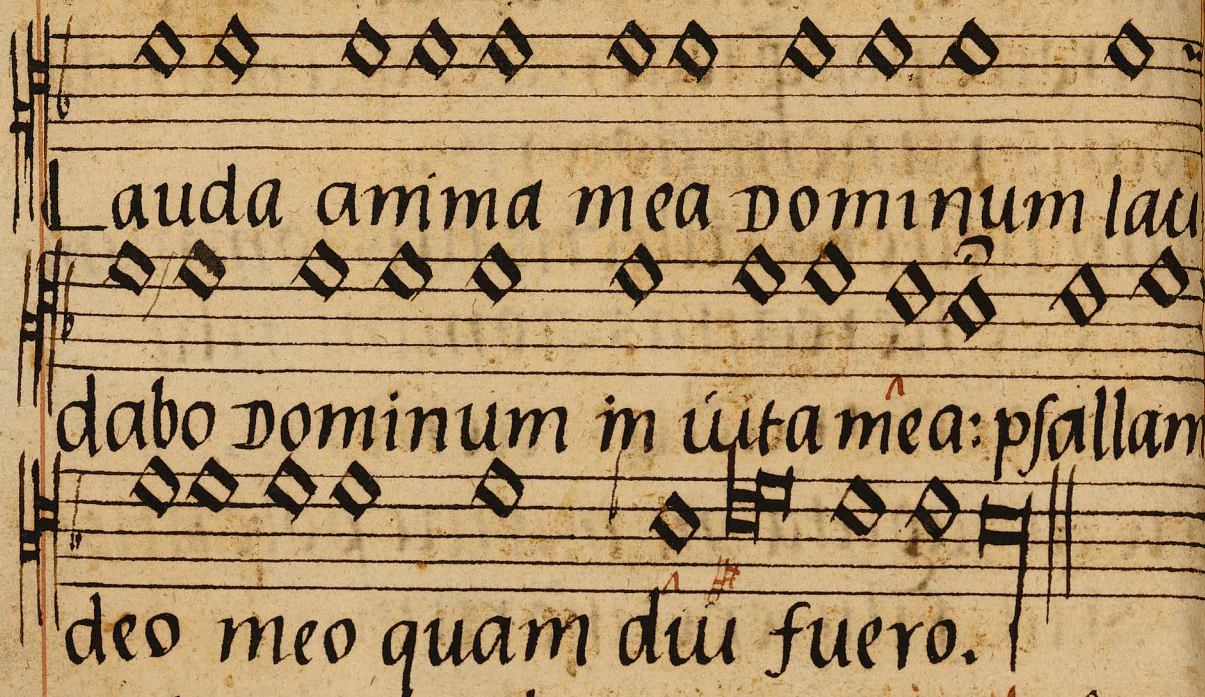 Lauda anima mea Dominum lau
dabo Dominum in uita mea: psallam
deo meo quam diu fuero.